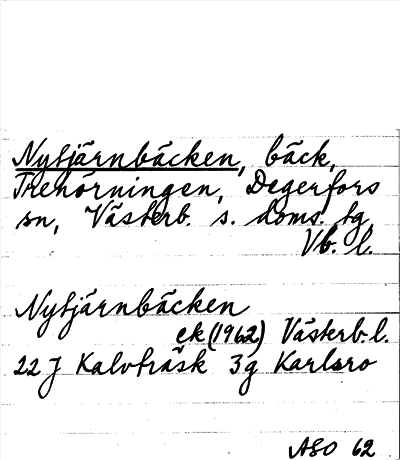 Nytjärnbäcken, bäck,
Trehörningen, Degerfors
sn, Västerb. s. doms. tg
Vb. l.
Nytjärnbäcken
ek (1962) Västerb. l.
22 J Kalvträsk 3g Karlsro
ASO 62